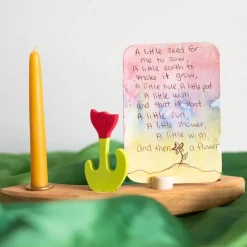 A little seed for
me to sow,
A little earth to
make it grow,
A little hole, A little pat
A little wish,
and that is that
A little sun,
A little shower,
A little wish,
And then a flower